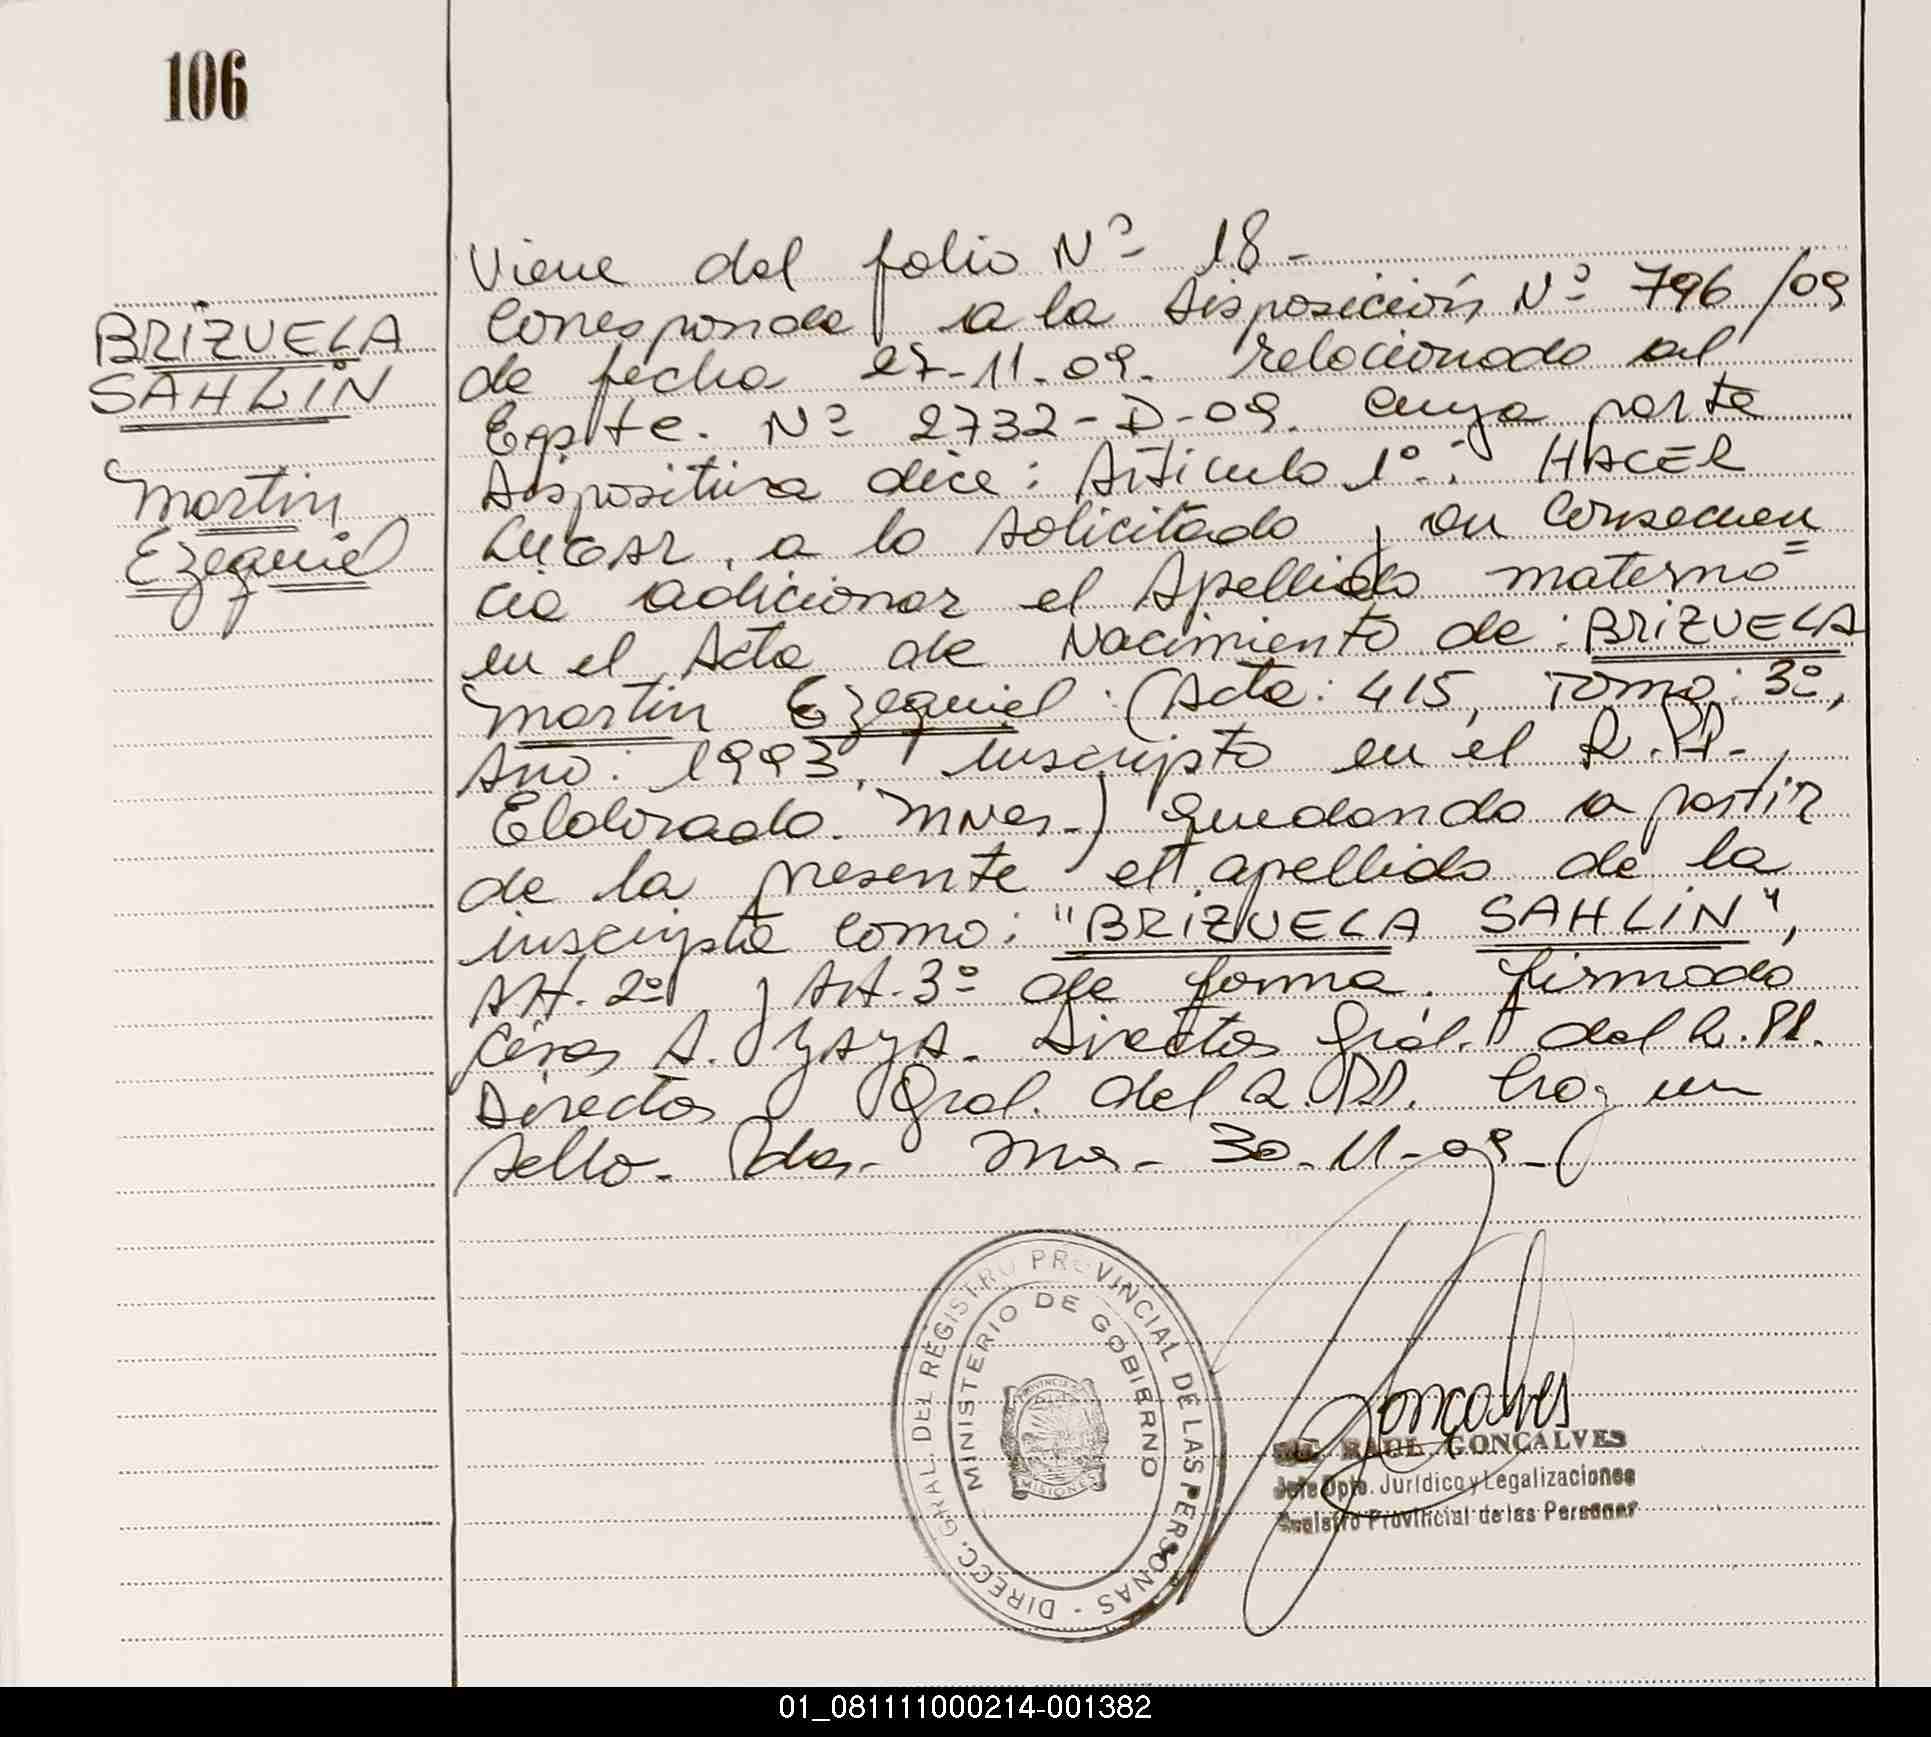 106
BRIZUELA
SAHLIN
Martin
Ezequiel
Viene del folio Nº 18-
Corresponde a la Disposición Nº 796/09
de fecha 27-11-09. relacionado al
Expte. Nº 2732-D-09. cuya parte
Dispositiva dice: Artículo 1º.: HACER
LUGAR, a lo solicitado, en consecuen
cia adicionar el Apellido materno=
en el Acta de Nacimiento de: BRIZUELA
Martin Ezequiel. (Acta: 415, Tomo: 3º,
Año: 1993, inscripto en el R.PP.
Eldorado. Mnes.) quedando a partir
de la presente el apellido de la
inscripta como: "BRIZUELA SAHLIN",
Art. 2º y Art. 3º de forma. firmado
César A. YAYA. Director Gral. del R.PP.
Director Gral. del R.PP. hay un
sello. Pdas. Mns. 30-11-09-
DIRECC. GRAL. DEL REGISTRO PROVINCIAL DE LAS PERSONAS -
MINISTERIO DE GOBIERNO
PROVINCIA DE
MISIONES
Goncalves
RAUL GONCALVES
Jefe Dpto. Jurídico y Legalizaciones
Registro Provincial de las Personas
01_081111000214-001382